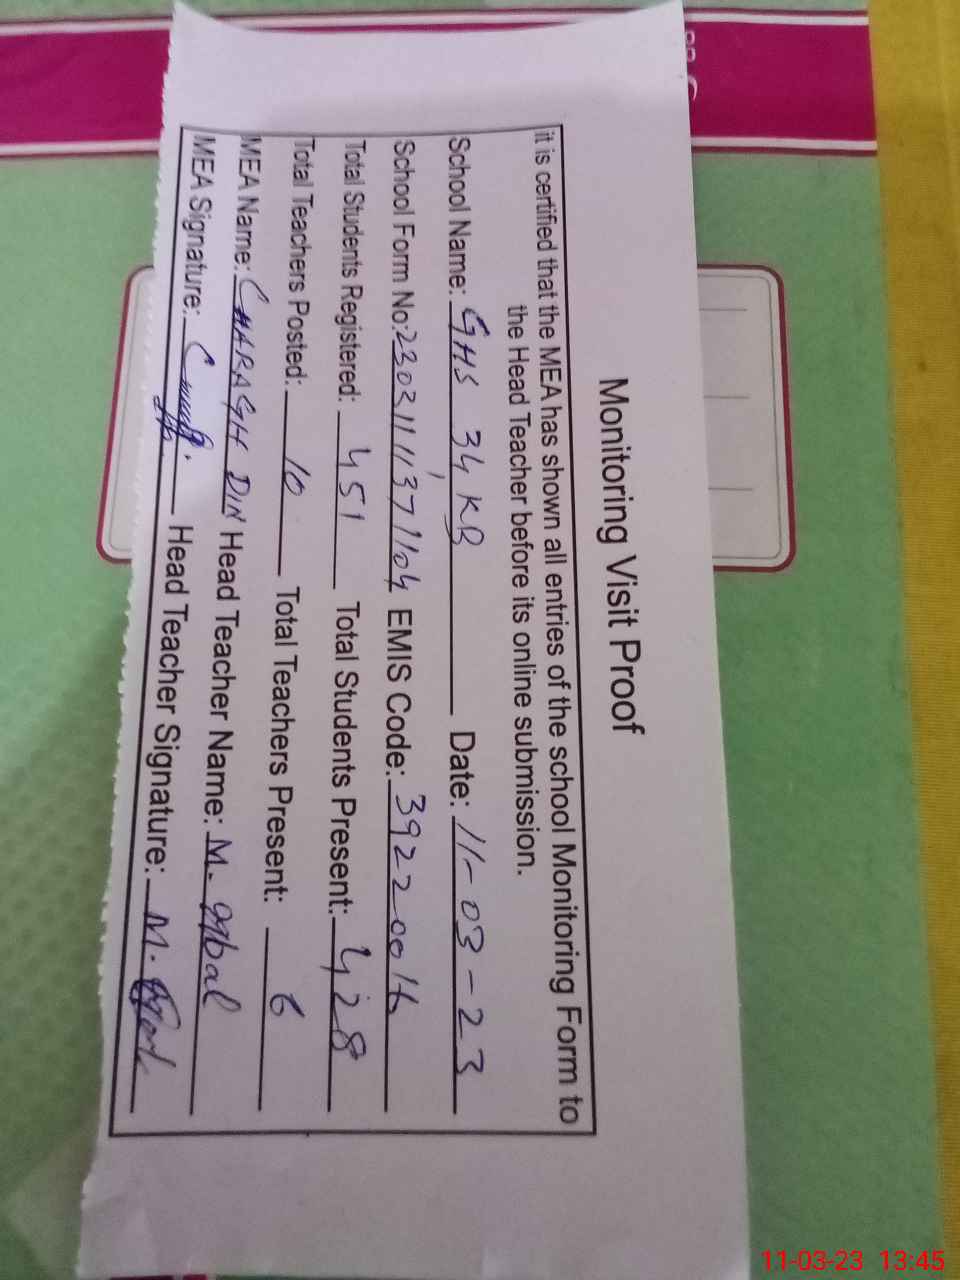 Monitoring Visit Proof
it is certified that the MEA has shown all entries of the school Monitoring Form to
the Head Teacher before its online submission.
School Name: GHS 34 KB Date: 11-03-23
School Form No: 23031111371104 EMIS Code: 39220016
Total Students Registered: 451 Total Students Present: 428
Total Teachers Posted: 10 Total Teachers Present: 6
MEA Name: CHARAGH DIN Head Teacher Name: M. Iqbal
MEA Signature: Head Teacher Signature: M.
11-03-23 13:45